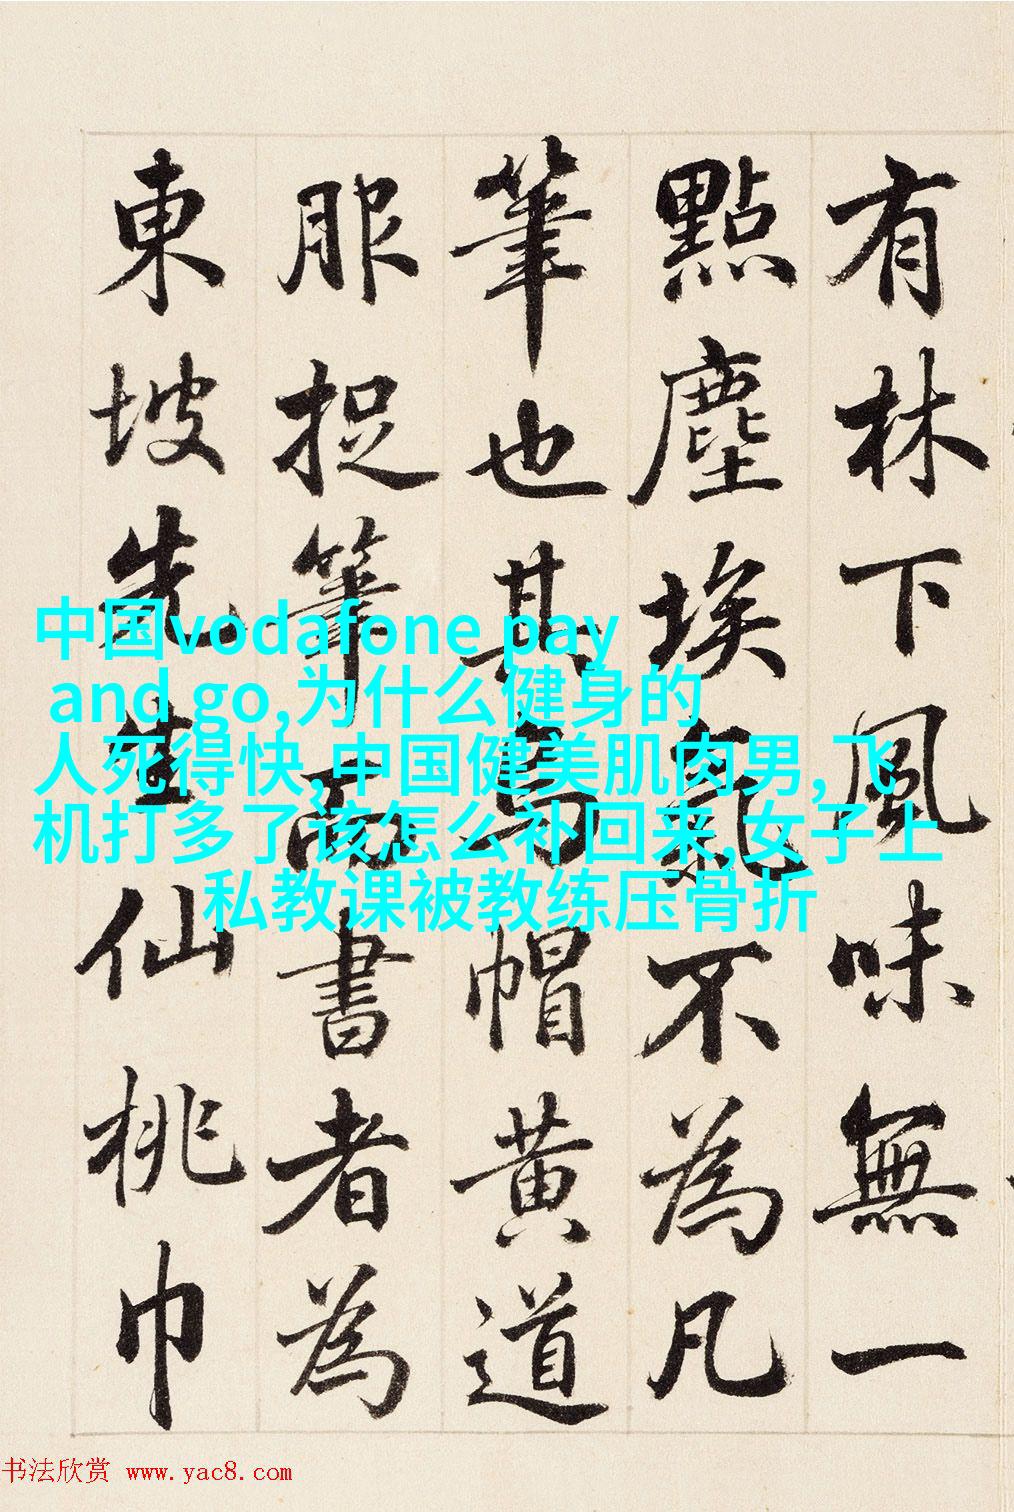 有林下風味無一
點塵埃氣不為凡
筆也其烏帽黃道
服捉筆而書者為
東坡先生仙桃巾
中国vodafone pay
and go,为什么健身的
人死得快,中国健美肌肉男,飞
机打多了该怎么补回来,女子上
私教课被教练压骨折
书法欣赏 www.yac8.com